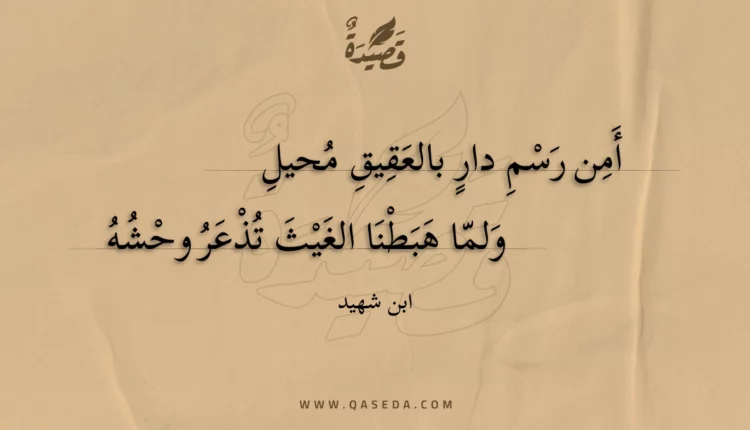 قَصِيْدَةٌ
أَمِن رَسْمِ دارٍ بالعَقِيقِ مُحيلِ
وَلمّا هَبَطْنَا الغَيْثَ تُذْعَرُ وحْشُهُ
ابن شهيد
WWW.QASEDA.COM